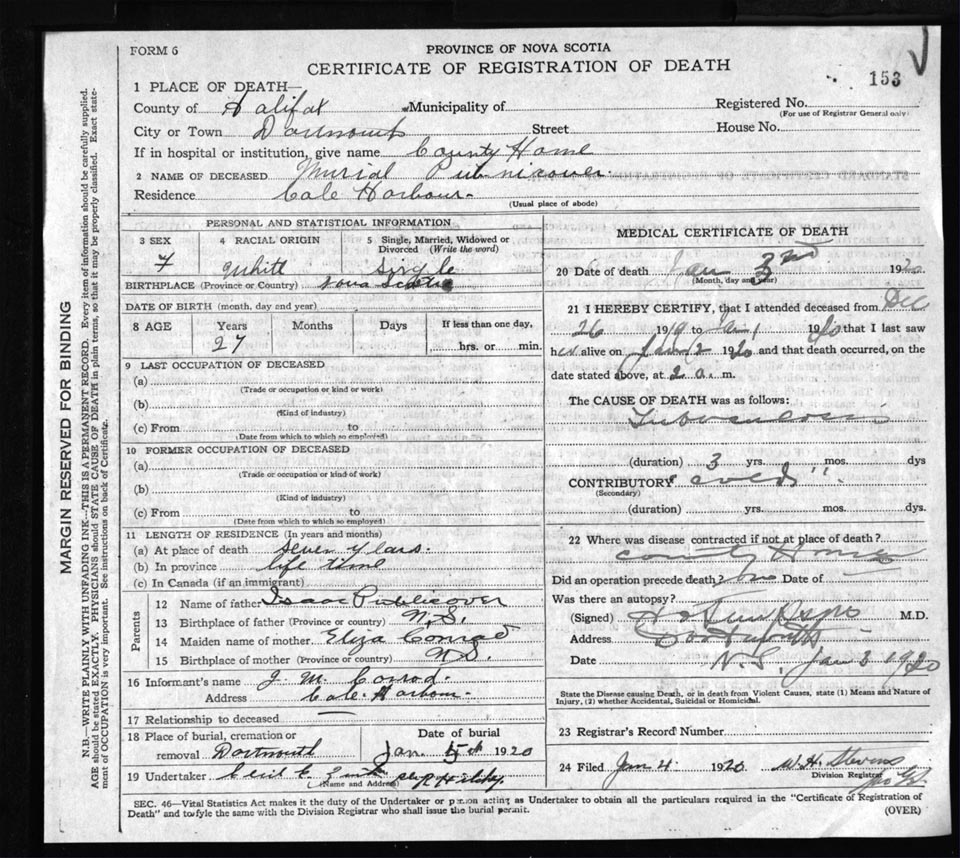 FORM 6
PROVINCE OF NOVA SCOTIA
CERTIFICATE OF REGISTRATION OF DEATH
153
1 PLACE OF DEATH—
County of Halifax Municipality of Registered No.
(For use of Registrar General only)
City or Town Dartmouth Street House No.
If in hospital or institution, give name County Home
2 NAME OF DECEASED Murial Publicover
Residence Cole Harbour
(Usual place of abode)
PERSONAL AND STATISTICAL INFORMATION
3 SEX 4 RACIAL ORIGIN 5 Single, Married, Widowed or Divorced (Write the word)
F White Single
BIRTHPLACE (Province or Country) Nova Scotia
DATE OF BIRTH (month, day and year)
8 AGE Years Months Days If less than one day,
27 hrs. or min.
9 LAST OCCUPATION OF DECEASED
(a)
(Trade or occupation or kind or work)
(b)
(Kind of industry)
(c) From to
(Date from which to which so employed)
10 FORMER OCCUPATION OF DECEASED
(a)
(Trade or occupation or kind of work)
(b)
(Kind of industry)
(c) From to
(Date from which to which so employed)
11 LENGTH OF RESIDENCE (In years and months)
(a) At place of death Seven years.
(b) In province life time
(c) In Canada (if an immigrant)
Parents
12 Name of father Isaac Publicover
13 Birthplace of father (Province or country) N.S.
14 Maiden name of mother Eliza Conrad
15 Birthplace of mother (Province or country) N.S.
16 Informant's name J. M. Conrod.
Address Cole Harbour
17 Relationship to deceased —
18 Place of burial, cremation or Date of burial
removal Dartmouth Jan. 5th 1920
19 Undertaker Cecil E. Zink
(Name and Address)
MEDICAL CERTIFICATE OF DEATH
20 Date of death Jan 3rd 1920
(Month, day and year)
21 I HEREBY CERTIFY, that I attended deceased from Dec
26 1919 to Jan 1920 that I last saw
her alive on Jan 2 1920 and that death occurred, on the
date stated above, at 2 a. m.
The CAUSE OF DEATH was as follows:
Tuberculosis
(duration) 3 yrs. mos. dys
CONTRIBUTORY
(Secondary)
(duration) yrs. mos. dys.
22 Where was disease contracted if not at place of death?
County
Did an operation precede death? no Date of —
Was there an autopsy?
(Signed) M.D.
Address Dartmouth
Date N.S. Jan 3 1920
State the Disease causing Death, or in death from Violent Causes, state (1) Means and Nature of
Injury, (2) whether Accidental, Suicidal or Homicidal.
23 Registrar's Record Number
24 Filed Jan 4 1920 W.H. Stevens
Division Registrar
SEC. 46—Vital Statistics Act makes it the duty of the Undertaker or person acting as Undertaker to obtain all the particulars required in the "Certificate of Registration of
Death" and to fyle the same with the Division Registrar who shall issue the burial permit. (OVER)
MARGIN RESERVED FOR BINDING
N.B.—WRITE PLAINLY WITH UNFADING INK—THIS IS A PERMANENT RECORD. Every item of information should be carefully supplied.
AGE should be stated EXACTLY. PHYSICIANS should STATE CAUSE OF DEATH in plain terms, so that it may be properly classified. Exact state-
ment of OCCUPATION is very important. See instructions on back of Certificate.